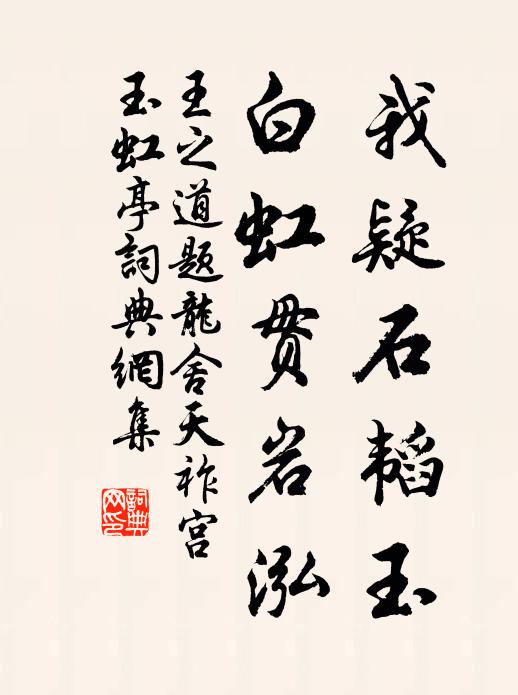 我疑石韬玉
白虹贯岩泓
王之道题龍舍天祚宫
玉虹亭詞典網集
詞典网印